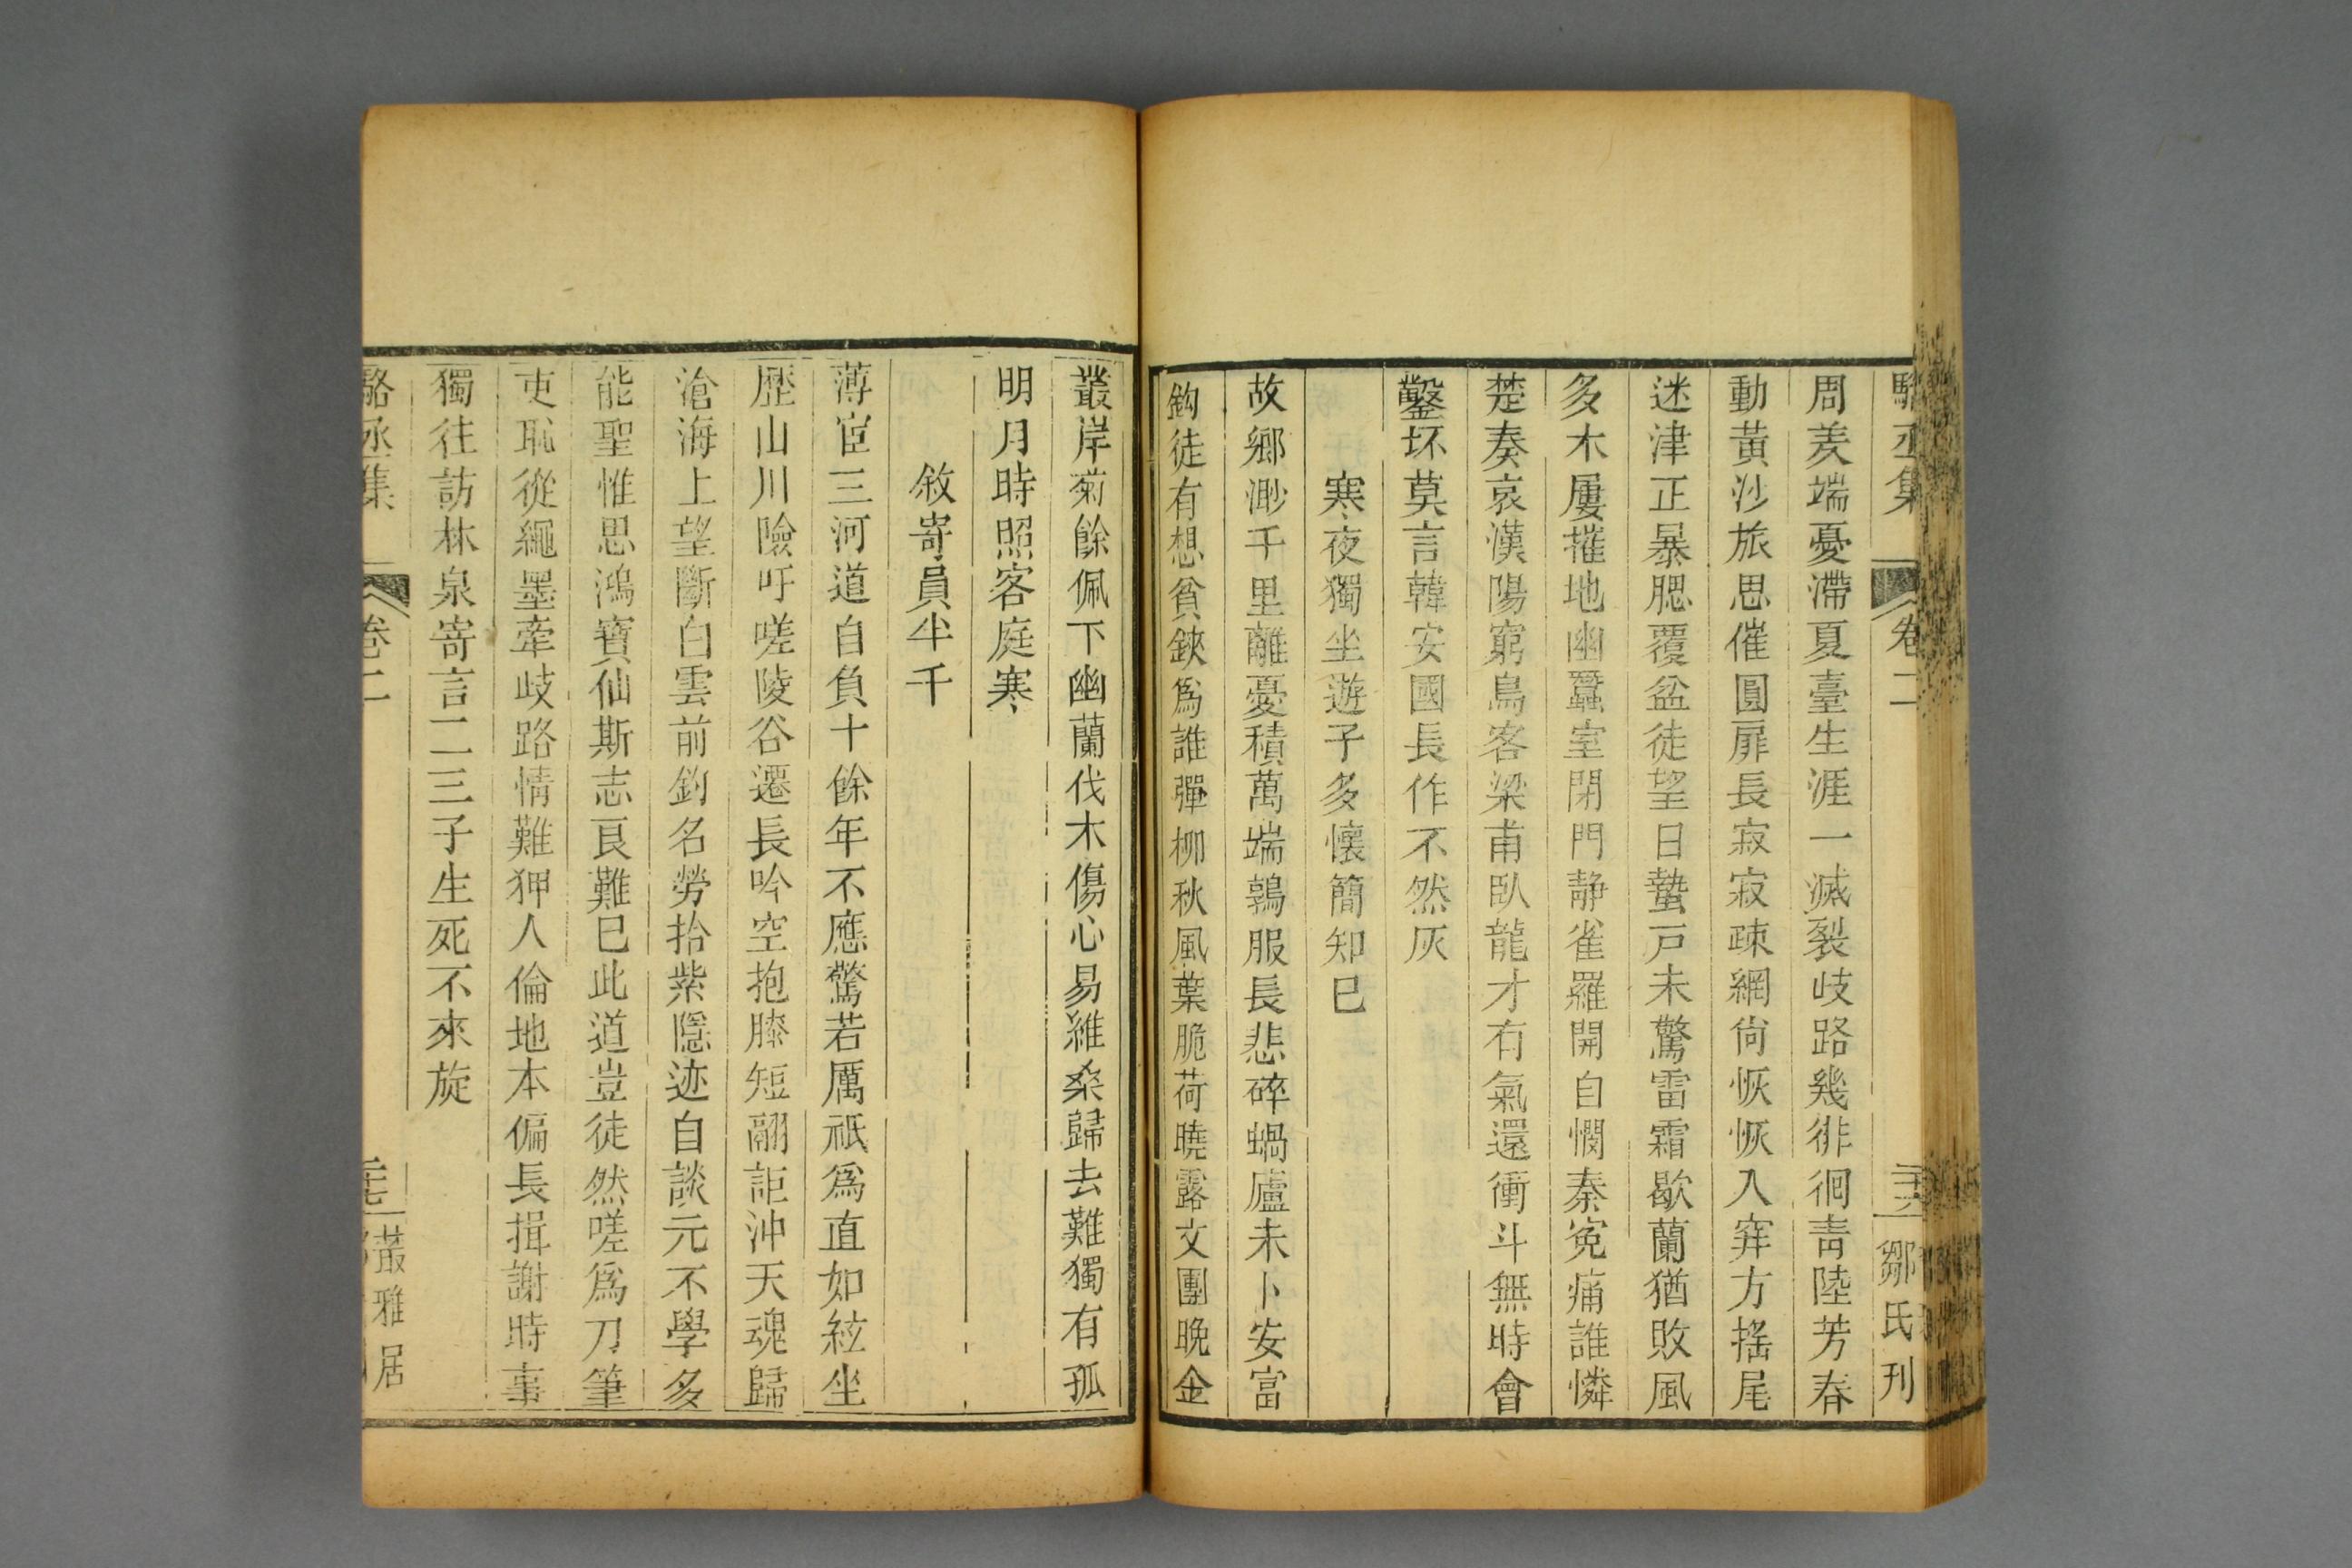 駱丞集 卷二 鄒氏刊
周羑端憂滯夏臺生涯一滅裂岐路幾徘徊靑陸芳春
動黃沙旅思催圓扉長寂寂疎網尙恢恢入穽方搖尾
迷津正暴腮覆盆徒望日蟄戸未驚雷霜歇蘭猶敗風
多木屢摧地幽蠶室閉門靜雀羅開自憫秦寃痛誰憐
楚奏哀漢陽窮鳥客梁甫臥龍才有氣還衝斗無時會
鑿坏莫言韓安國長作不然灰
寒夜獨坐遊子多懷簡知已
故鄉渺千里離憂積萬端鶉服長悲碎蝸廬未卜安富
鈎徒有想貧鋏爲誰彈柳秋風葉脆荷曉露文團晚金
叢岸菊餘佩下幽蘭伐木傷心易維桑歸去難獨有孤
明月時照客庭寒
敘寄員半千
薄宦三河道自負十餘年不應驚若厲祇爲直如絃坐
歷山川險吁嗟陵谷遷長吟空抱膝短翮詎沖天魂歸
滄海上望斷白雲前釣名勞拾紫隱迹自談元不學多
能聖惟思鴻寶仙斯志良難已此道豈徒然嗟爲刀筆
吏恥從繩墨牽岐路情難狎人倫地本偏長揖謝時事
獨往訪林泉寄言二三子生死不來旋
駱丞集 卷二 叢雅居